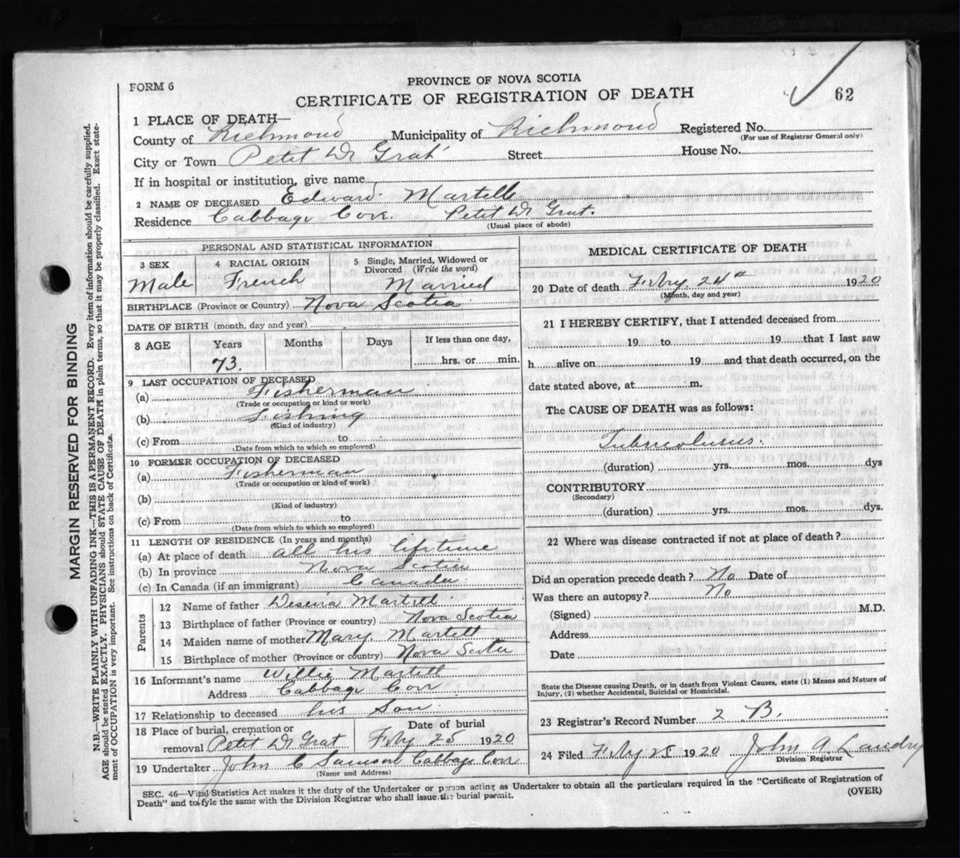 PROVINCE OF NOVA SCOTIA
FORM 6
CERTIFICATE OF REGISTRATION OF DEATH
62
1 PLACE OF DEATH—
County of Richmond Municipality of Richmond Registered No.
(For use of Registrar General only)
City or Town Petit De Grat Street House No.
If in hospital or institution, give name
2 NAME OF DECEASED Edward Martell
Residence Cabbage Cove. Petit De Grat.
(Usual place of abode)
PERSONAL AND STATISTICAL INFORMATION
3 SEX 4 RACIAL ORIGIN 5 Single, Married, Widowed or Divorced (Write the word)
Male French Married
BIRTHPLACE (Province or Country) Nova Scotia
DATE OF BIRTH (month, day and year)
8 AGE Years Months Days If less than one day,
73. hrs. or min.
9 LAST OCCUPATION OF DECEASED
(a) Fisherman
(Trade or occupation or kind or work)
(b) Fishing
(Kind of industry)
(c) From to
(Date from which to which so employed)
10 FORMER OCCUPATION OF DECEASED
(a) Fisherman
(Trade or occupation or kind of work)
(b)
(Kind of industry)
(c) From to
(Date from which to which so employed)
11 LENGTH OF RESIDENCE (In years and months)
(a) At place of death all his lifetime
(b) In province Nova Scotia
(c) In Canada (if an immigrant) Canada
Parents
12 Name of father Martell
13 Birthplace of father (Province or country) Nova Scotia
14 Maiden name of mother Mary Martell
15 Birthplace of mother (Province or country) Nova Scotia
16 Informant's name Willie Martell
Address Cabbage Cove
17 Relationship to deceased his Son
18 Place of burial, cremation or removal Petit De Grat Date of burial Feby 25 1920
19 Undertaker John C Samson Cabbage Cove
(Name and Address)
MEDICAL CERTIFICATE OF DEATH
20 Date of death Febry 24th 1920
(Month, day and year)
21 I HEREBY CERTIFY, that I attended deceased from
19 to 19 that I last saw
h alive on 19 and that death occurred, on the
date stated above, at m.
The CAUSE OF DEATH was as follows:
Tuberculosis.
(duration) yrs. mos. dys
CONTRIBUTORY
(Secondary)
(duration) yrs. mos. dys.
22 Where was disease contracted if not at place of death?
Did an operation precede death? No Date of
Was there an autopsy? No
(Signed) M.D.
Address
Date
State the Disease causing Death, or in death from Violent Causes, state (1) Means and Nature of
Injury, (2) whether Accidental, Suicidal or Homicidal.
23 Registrar's Record Number 2 B.
24 Filed Feby 25 1920 John A Landry
Division Registrar
SEC. 46—Vital Statistics Act makes it the duty of the Undertaker or person acting as Undertaker to obtain all the particulars required in the "Certificate of Registration of
Death" and to file the same with the Division Registrar who shall issue the burial permit.
(OVER)
MARGIN RESERVED FOR BINDING
N.B.—WRITE PLAINLY WITH UNFADING INK—THIS IS A PERMANENT RECORD. Every item of information should be carefully supplied.
AGE should be stated EXACTLY. PHYSICIANS should STATE CAUSE OF DEATH in plain terms, so that it may be properly classified. Exact statement of OCCUPATION is very important. See instructions on back of Certificate.